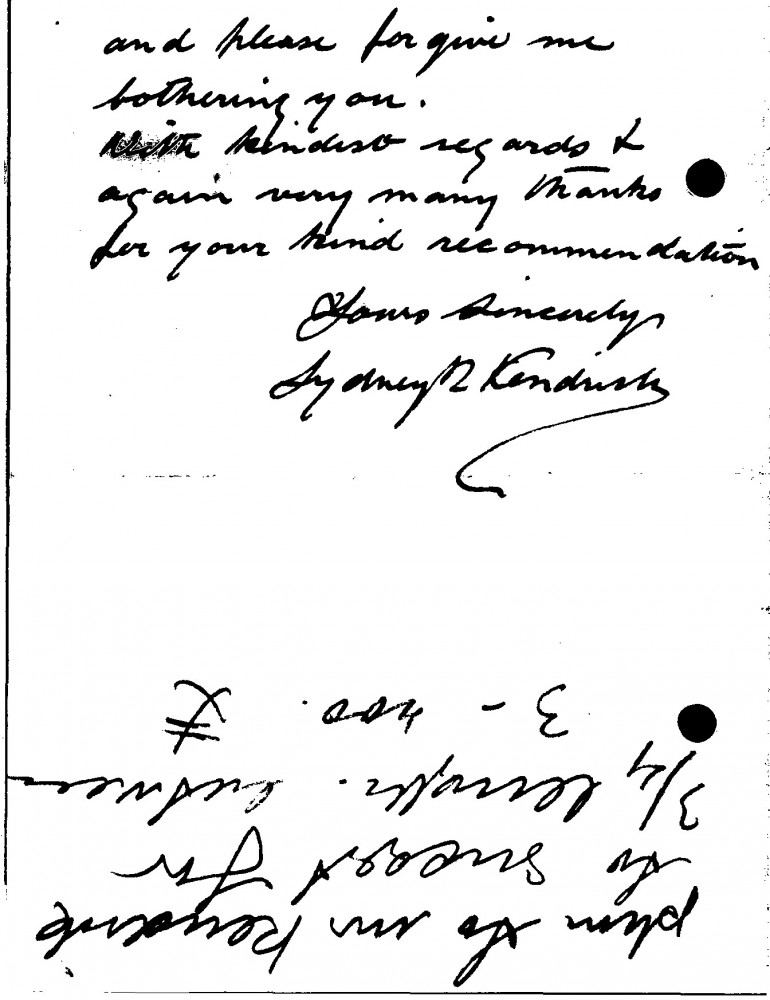 and please forgive me
bothering you.
With kindest regards &
again very many thanks
for your kind recommendation
Yours sincerely
Sydney P Kendrick
to mr Kendrick
to sugest for
3/4 length. between
3 - 400. £